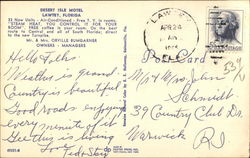 DESERT ISLE MOTEL
LAWTEY, FLORIDA
32 New Units - Air-Conditioned - Free T. V. in rooms.
"STEAM HEAT, YOU CONTROL IT FOR YOUR
ROOM". FREE coffee in your room. On the best
route to Central and all of South Florida; direct
to the new Turnpike.
Mr. & Mrs. ORVILLE BUMGARNER
OWNERS - MANAGERS
Hello Folks
Weather is grand
Country is beautiful
Good roads enjoying
every minute of it
See this is living
Love Ted
LAWTEY
APR 24
AM
Post Card
Mr & Mrs John
Schmidt
39 Country Club Dr.
Warwick
RI